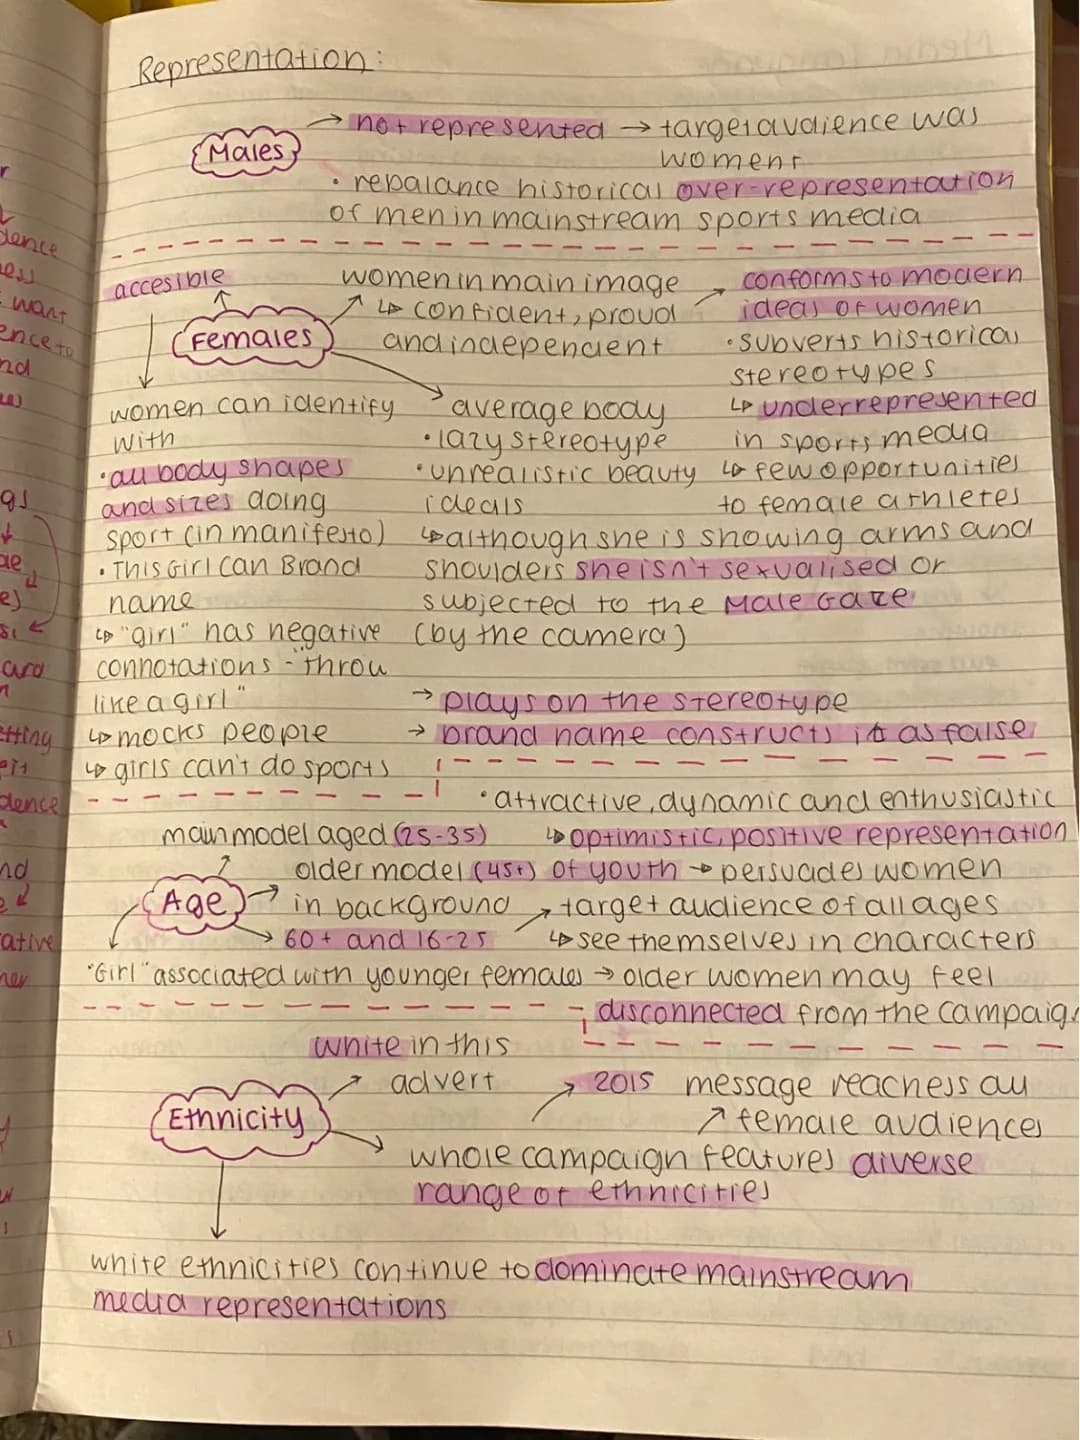 Representation:
Males
→ not represented → target audience was
women
• rebalance historical over-representation
of men in mainstream sports media
accesible
Females
women in main image
↳ confident, proud
and independent
conforms to modern
ideas of women
• subverts historical
stereotypes
↳ underrepresented
in sports media
↳ few opportunities
to female athletes
women can identify
with
• all body shapes
and sizes doing
sport (in manifesto)
• This Girl Can Brand
name
↳ "girl" has negative
connotations - "throw
like a girl"
↳ mocks people
↳ girls can't do sports
average body
• lazy stereotype
• unrealistic beauty
ideals
↳ although she is showing arms and
shoulders she isn't sexualised or
subjected to the Male Gaze
(by the camera)
→ plays on the stereotype
→ brand name constructs it as false
Age
main model aged (25-35)
older model (45+)
in background
60+ and 16-25
• attractive, dynamic and enthusiastic
↳ optimistic, positive representation
of youth → persuades women
target audience of all ages
↳ see themselves in characters
"Girl" associated with younger females → older women may feel
disconnected from the campaign
Ethnicity
white in this
advert
whole campaign features diverse
range of ethnicities
2015
message reachess all
female audiences
white ethnicities continue to dominate mainstream
media representations
dence
want
ence to
nd
gs
etting
dence
nd
ative